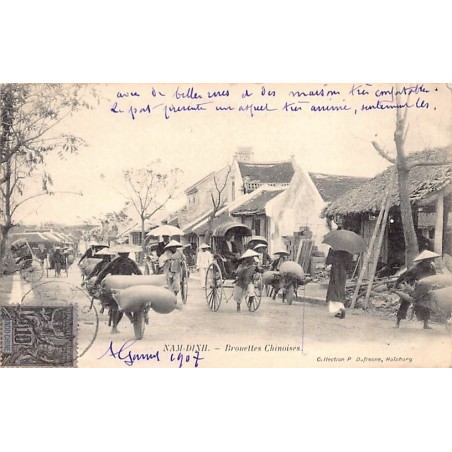 avec de belles rues et des maisons très confortables.
Le port présente un aspect très animé, surtout les
NAM-DINH. - Brouettes Chinoises.
1907
Collection P. Dufresne, Haïphong
10